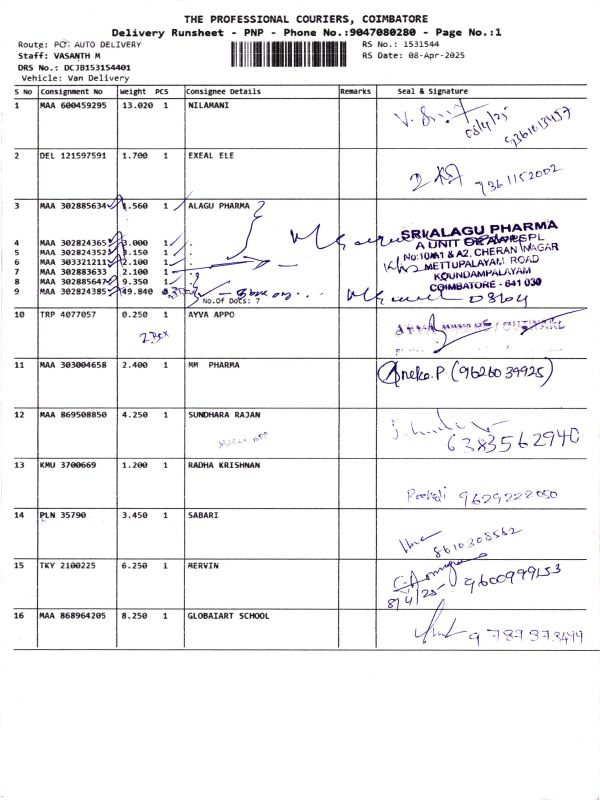 THE PROFESSIONAL COURIERS, COIMBATORE
Delivery Runsheet - PNP - Phone No.:9047080280 - Page No.:1
Route: PCT AUTO DELIVERY RS No.: 1531544
Staff: VASANTH M RS Date: 08-Apr-2025
DRS No.: DCJB153154401
Vehicle: Van Delivery
S No Consignment No Weight PCS Consignee Details Remarks Seal & Signature
1 MAA 600459295 13.020 1 NILAMANI
08/4/25
9361013457
2 DEL 121597591 1.700 1 EXEAL ELE
9361152002
3 MAA 302885634 1.560 1 ALAGU PHARMA
SRI ALAGU PHARMA
4 MAA 302824365 3.000 1 .
A UNIT OF AWESPL
5 MAA 302824352 3.150 1 .
No:10/A1 & A2, CHERAN NAGAR
6 MAA 303321211 2.100 1 .
METTUPALAYAM ROAD
7 MAA 302883633 2.100 1
KOUNDAMPALAYAM
8 MAA 302885647 9.350 1 .
COIMBATORE - 641 030
9 MAA 302824385 49.840
No.Of Docs: 7
10 TRP 4077057 0.250 1 AYVA APPO
2 Box
11 MAA 303004658 2.400 1 MM PHARMA
Aneka.P. (9626039925)
12 MAA 869508850 4.250 1 SUNDHARA RAJAN
6383562940
13 KMU 3700669 1.200 1 RADHA KRISHNAN
9629222050
14 PLN 35790 3.450 1 SABARI
8610308552
15 TKY 2100225 6.250 1 MERVIN
8/4/25 9600999153
16 MAA 868964205 8.250 1 GLOBAIART SCHOOL
9787873499